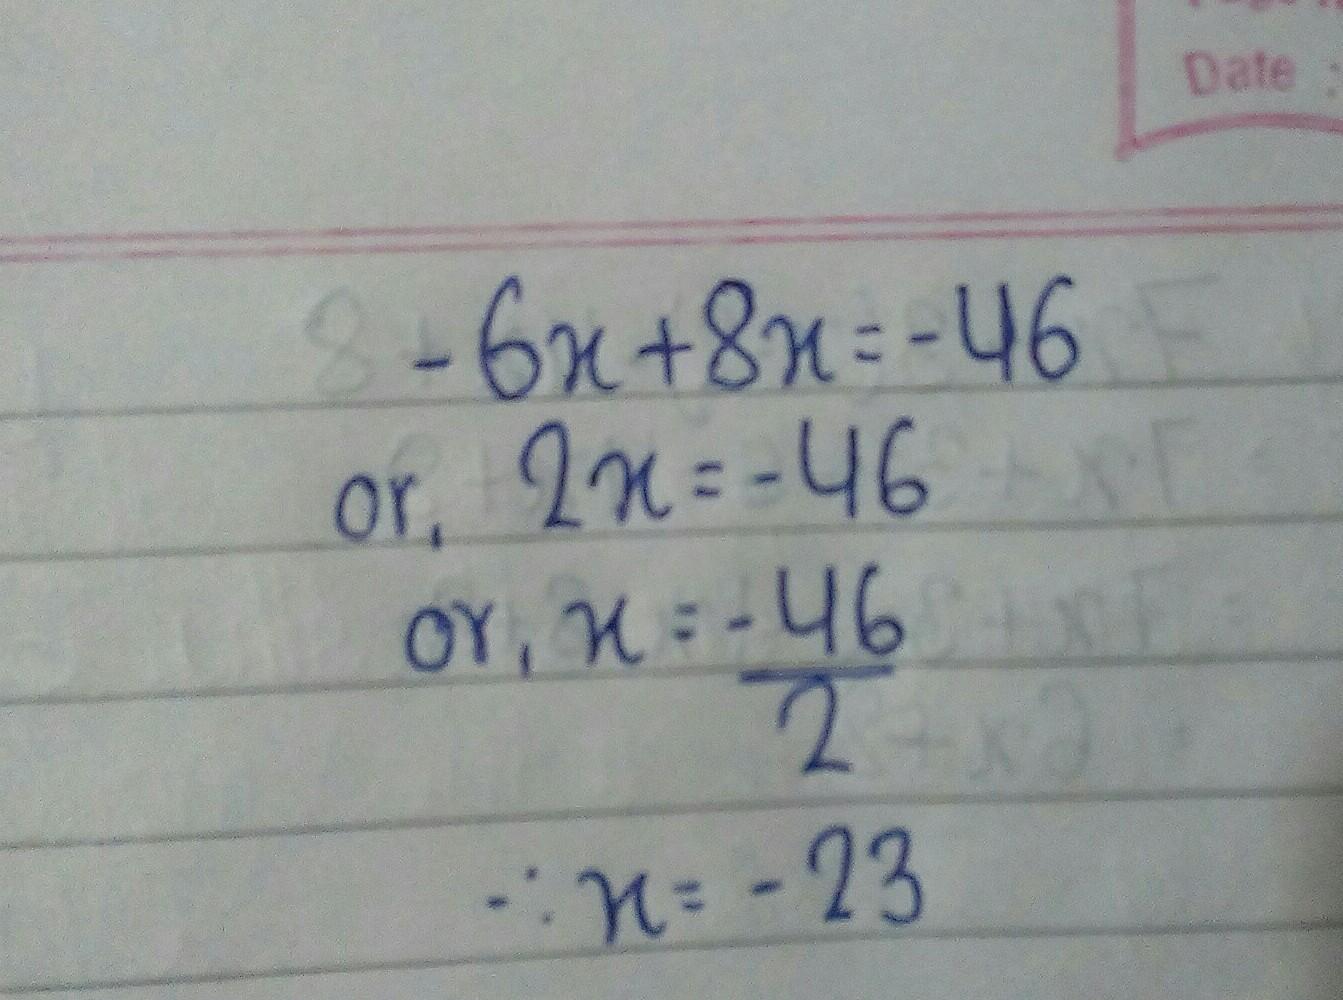 Date :
-6x+8x=-46
or, 2x=-46
or, x=-46/2
∴ x=-23